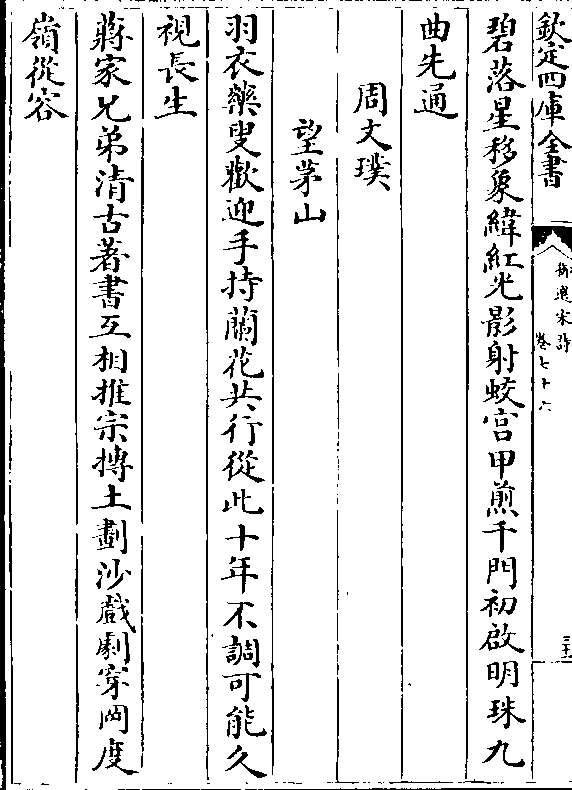 欽定四庫全書
御選宋詩
卷七十六
碧落星移象緯紅光影射蛟宮甲煎千門初啟明珠九
曲先通
周文璞
望茅山
羽衣藥叟歡迎手持蘭花共行從此十年不調可能久
視長生
蔣家兄弟清古著書互相推宗摶土劃沙戲劇穿岡度
嶺從容